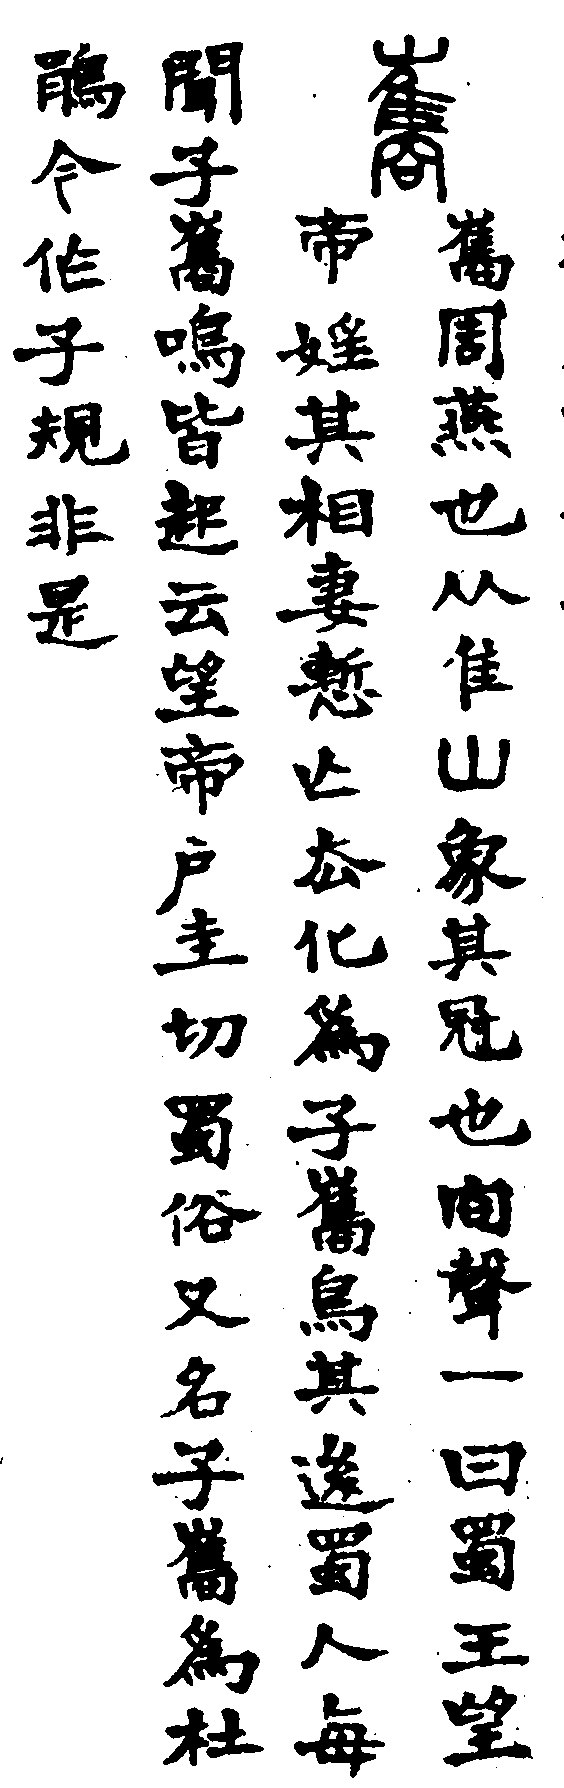 巂
巂周燕也从隹屮象其冠也㕯聲一曰蜀王望
帝婬其相妻慙亾厺化爲子巂鳥其後蜀人每
聞子巂鳴皆起云望帝戶圭切蜀俗又名子巂爲杜
鵑今作子規非是